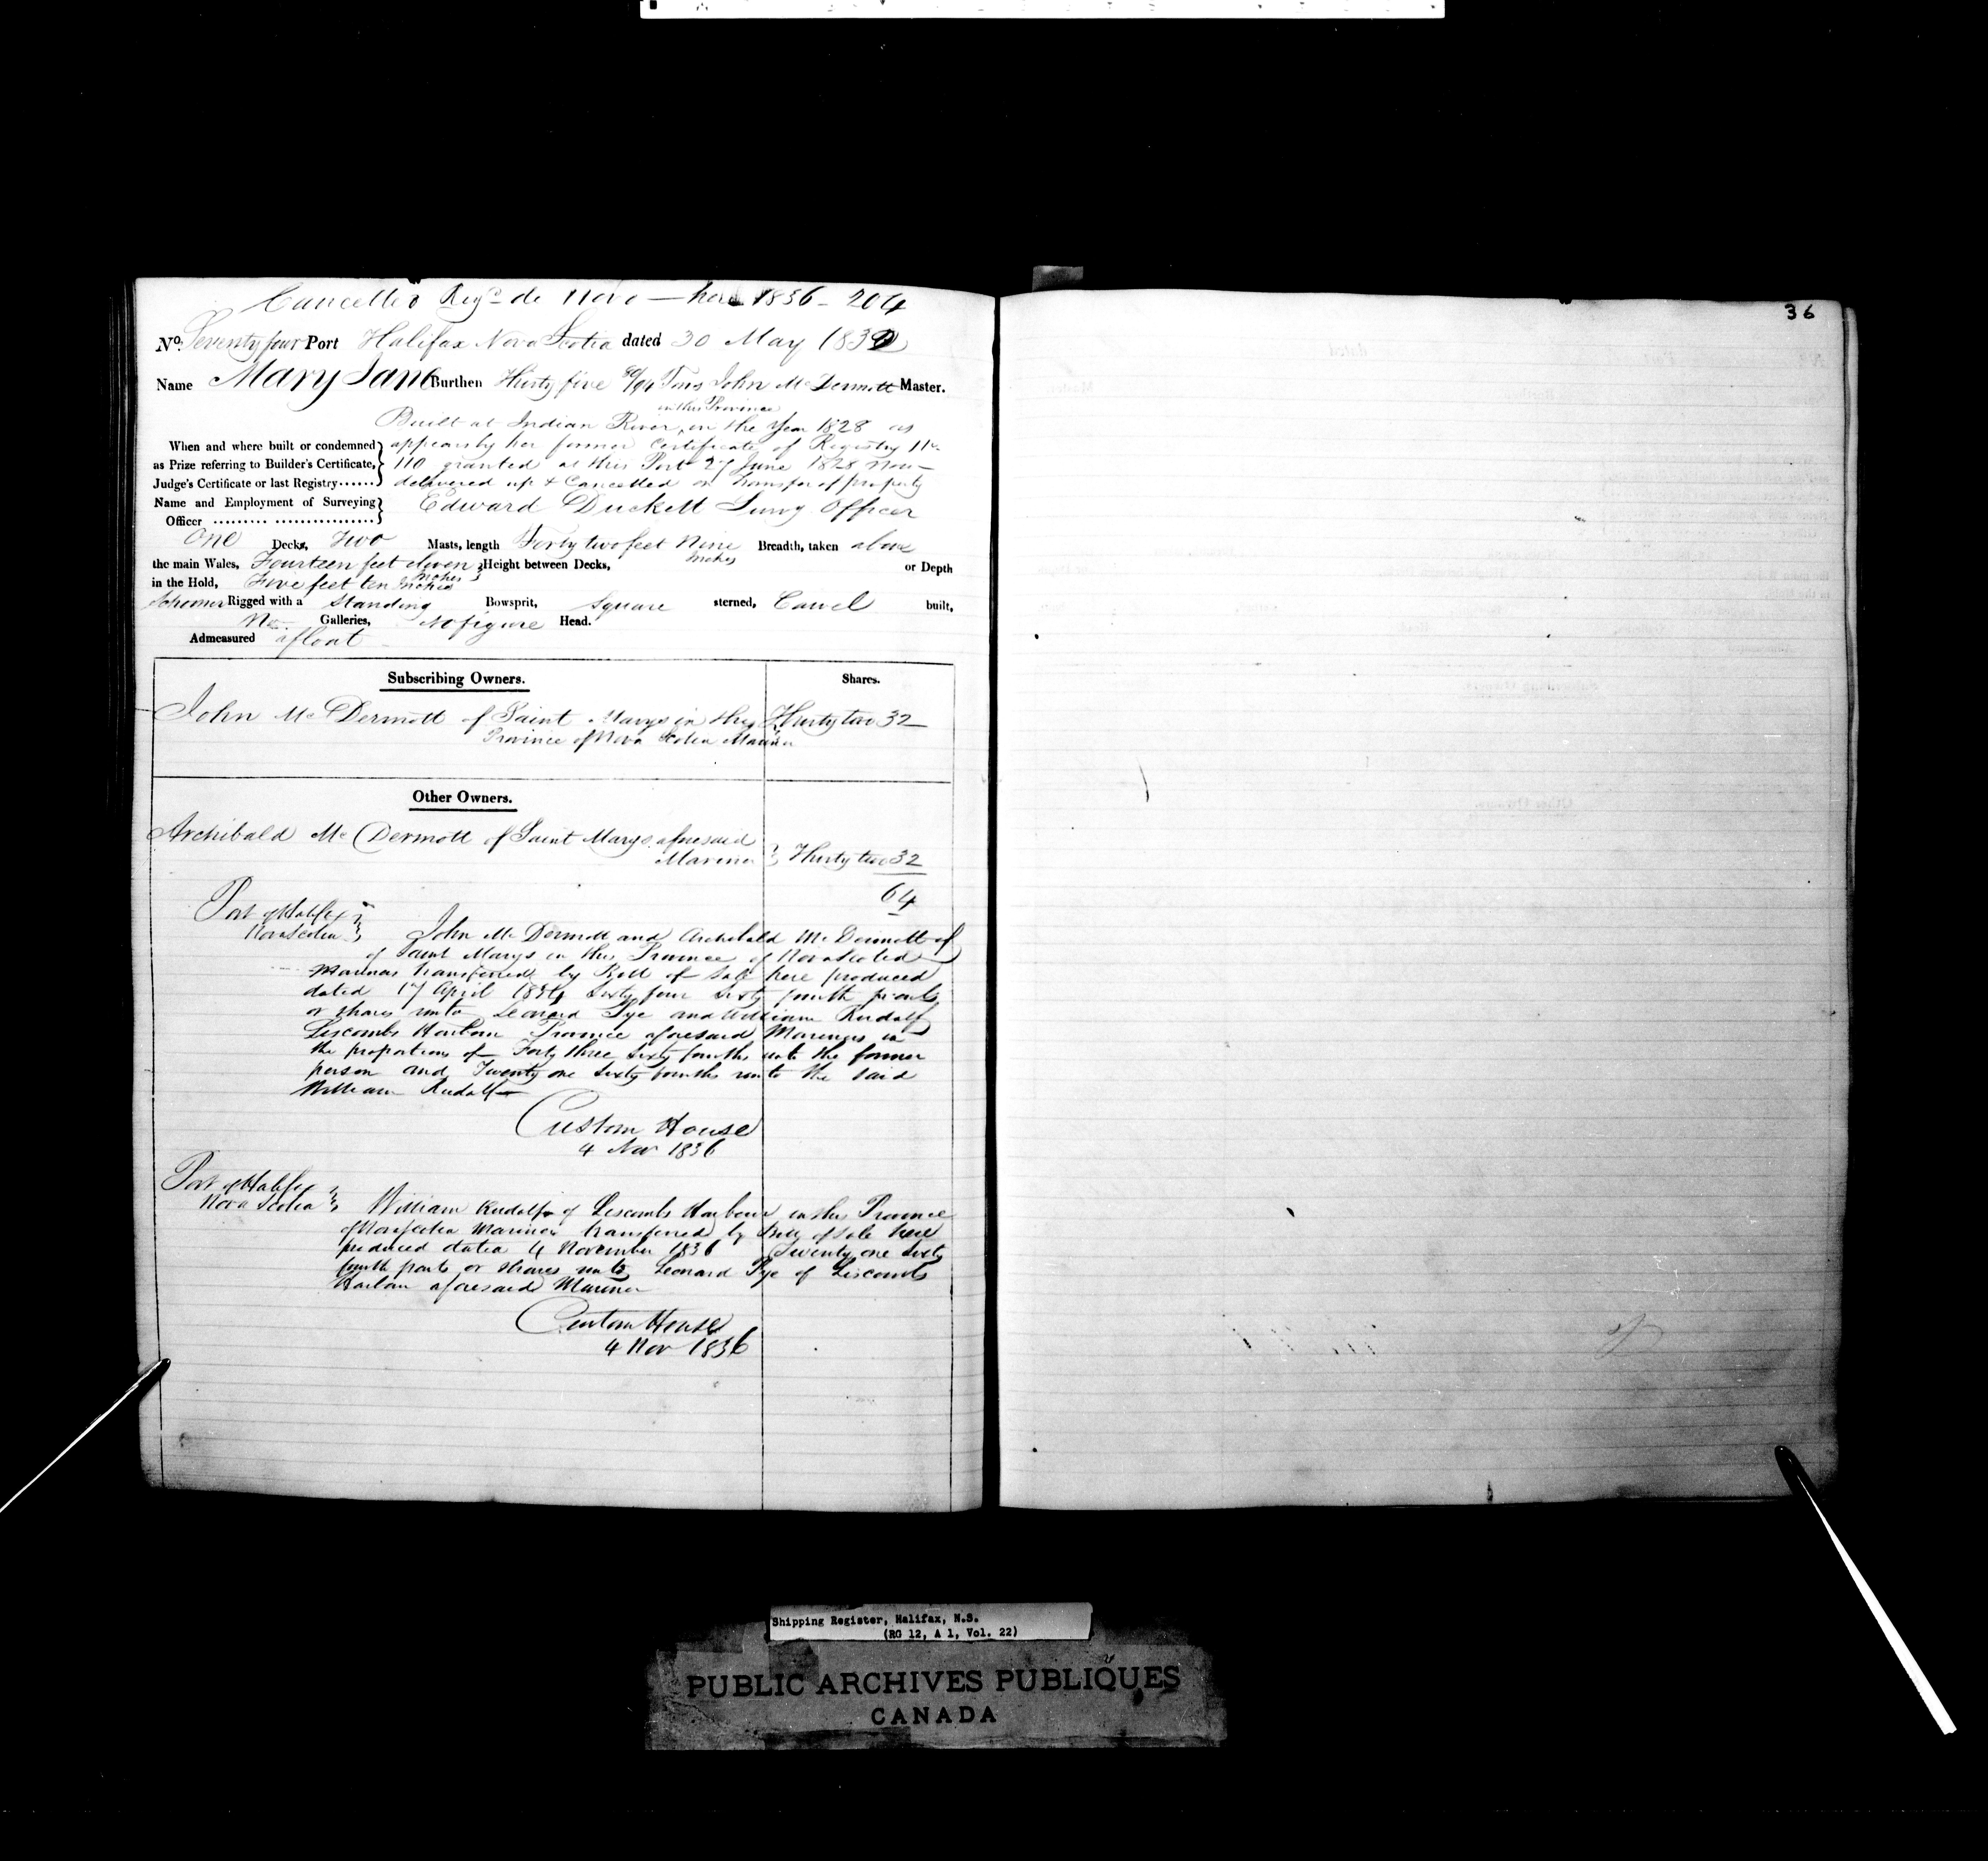 Cancelled Regd. de Novo — here 1836 - 204
36
No. Seventy four Port Halifax Nova Scotia dated 30 May 183
Name Mary Jane Burthen Thirty five 80/94 Tons John McDermott Master.
in this Province
Built at Indian River, in the Year 1828 as
When and where built or condemned appears by her former Certificate of Registry No.
as Prize referring to Builder's Certificate, 110 granted at this Port 27 June 1828 now
Judge's Certificate or last Registry...... delivered up & Cancelled on Transfer of property
Name and Employment of Surveying Edward Duckett Survg Officer
Officer ......... ................
One Decks, Two Masts, length Forty two feet Nine Inches Breadth, taken above
the main Wales, Fourteen feet eleven Inches Height between Decks, or Depth
in the Hold, Five feet ten Inches
Schooner Rigged with a Standing Bowsprit, Square sterned, Carvel built,
No Galleries, No figure Head.
Admeasured afloat
Subscribing Owners. Shares.
John McDermott of Saint Marys in the Thirty two 32
Province of Nova Scotia Mariner
Other Owners.
Archibald McDermott of Saint Marys aforesaid
Mariner Thirty two 32
64
Port of Halifax
Nova Scotia John McDermott and Archibald McDermott of
of Saint Marys in the Province of Nova Scotia
Mariners transferred by Bill of Sale here produced
dated 17 April 1834 Sixty four Sixty fourth parts
or shares unto Leonard Pye and William Rudolf
Liscombs Harbour Province aforesaid Mariners in
the proportions of Forty three Sixty fourths unto the former
person and Twenty one Sixty fourths unto the said
William Rudolf
Custom House
4 Nov 1836
Port of Halifax
Nova Scotia William Rudolf of Liscombs Harbour in the Province
of Nova Scotia Mariner transferred by Bill of Sale here
produced dated 4 November 1836 Twenty one Sixty
fourth parts or shares unto Leonard Pye of Liscombs
Harbour aforesaid Mariner
Custom House
4 Nov 1836
Shipping Register, Halifax, N.S.
(RG 12, A 1, Vol. 22)
PUBLIC ARCHIVES PUBLIQUES
CANADA